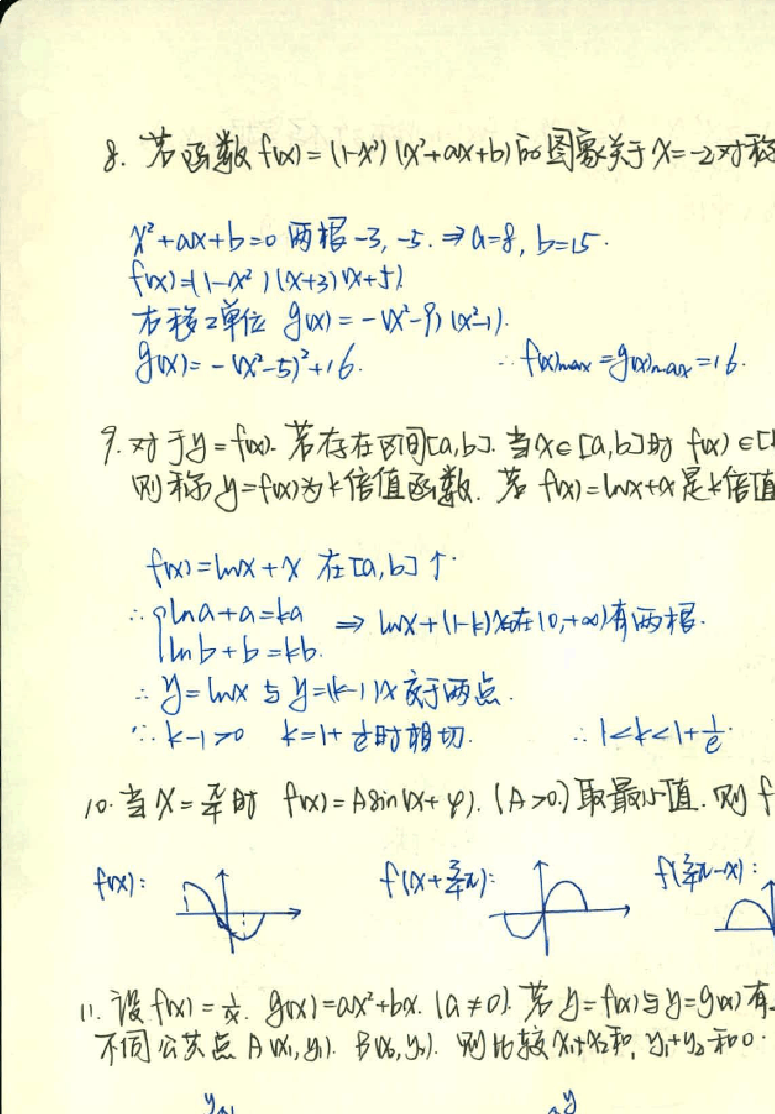 8. 若函数 f(x) = (1-x²)(x²+ax+b) 的图象关于 x=-2 对称
x²+ax+b=0 两根 -3, -5. ⇒ a=8, b=15.
f(x)=(1-x²)(x+3)(x+5)
右移2单位 g(x) = -(x²-9)(x²-1).
g(x)= -(x²-5)²+16. ∴ f(x)max = g(x)max = 16.
9. 对于 y=f(x). 若存在区间[a,b]. 当x∈[a,b]时 f(x)∈[
则称 y=f(x)为k倍值函数. 若 f(x)=lnx+x 是k倍值
f(x)=lnx+x 在[a,b]↑.
∴ { lna+a=ka ⇒ lnx+(1-k)x在(0,+∞)有两根.
lnb+b=kb.
∴ y=lnx 与 y=(k-1)x 交于两点.
∵ k-1>0 k=1+1/e时相切. ∴ 1<k<1+1/e.
10. 当x=π/4时 f(x)=Asin(x+φ). (A>0.)取最小值. 则 f
f(x): f(x+3/4π): f(3/4π-x):
11. 设 f(x)=1/x. g(x)=ax²+bx. (a≠0). 若 y=f(x)与y=g(x)有
不同公共点 A(x₁,y₁). B(x₂,y₂). 则比较 x₁+x₂和, y₁+y₂ 和0.
y y